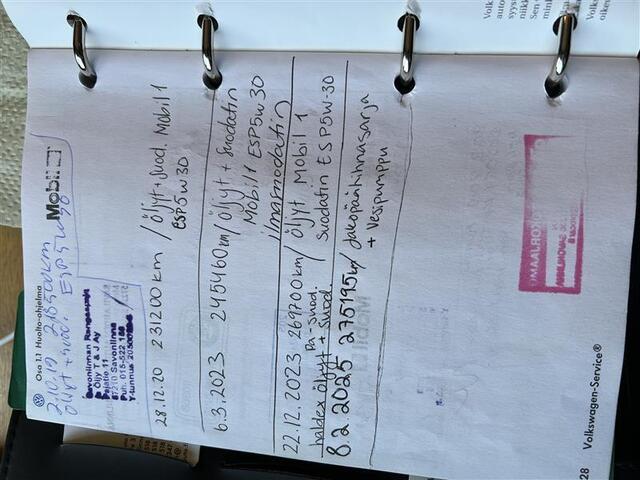 Osa 1.1 Huolto-ohjelma
2.10.19 218500km
Öljyt + suod. ESP 5w30
Mobil 1
Savonlinnan Rengaspaja
ja Öljy T & J Ay
Pajatie 11
57210 Savonlinna
Puh. 015-522 188
28.12.20 231200 km / Öljyt + suod. Mobil 1
ESP 5w30
6.3.2023 245460km / Öljyt + Suodatin
Mobil 1 ESP 5w30
Ilmansuodatin
22.12.2023 269700km / Öljyt Mobil 1
Suodatin ESP 5w-30
haldex öljyt + suod.
8 2 2025 275195km / Jakopäänhihnasarja
+ Vesipumppu
28
Volkswagen-Service®